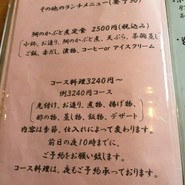 その他のランチメニュー(要予約)
鯛のかぶと煮定食 2500円(税込み)
小鉢、お造り、鯛のかぶと煮、天ぷら、茶碗蒸し
ご飯、赤だし、煮物、コーヒーor アイスクリーム
コース料理3240円〜
例3240円コース
先付け、お造り、煮物、揚げ物、
酢の物、蒸し物、飯物、デザート
内容は季節、仕入れによって変わります。
前日の夜10時までに、
ご予約をお願い致します。
コース料理は、夜もご予約承っております。